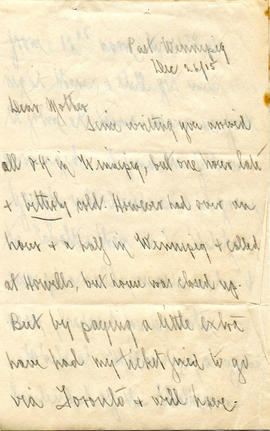 Past Winnipeg
Dec 26/15
Dear Mother
Since writing you arrived
all right in Winnipeg, but one hour late
+ bitterly cold. However had over an
hour + a half in Winnipeg + called
at Howells, but house was closed up.
But by paying a little extra
have had my ticket fixed to go
via Toronto + will have